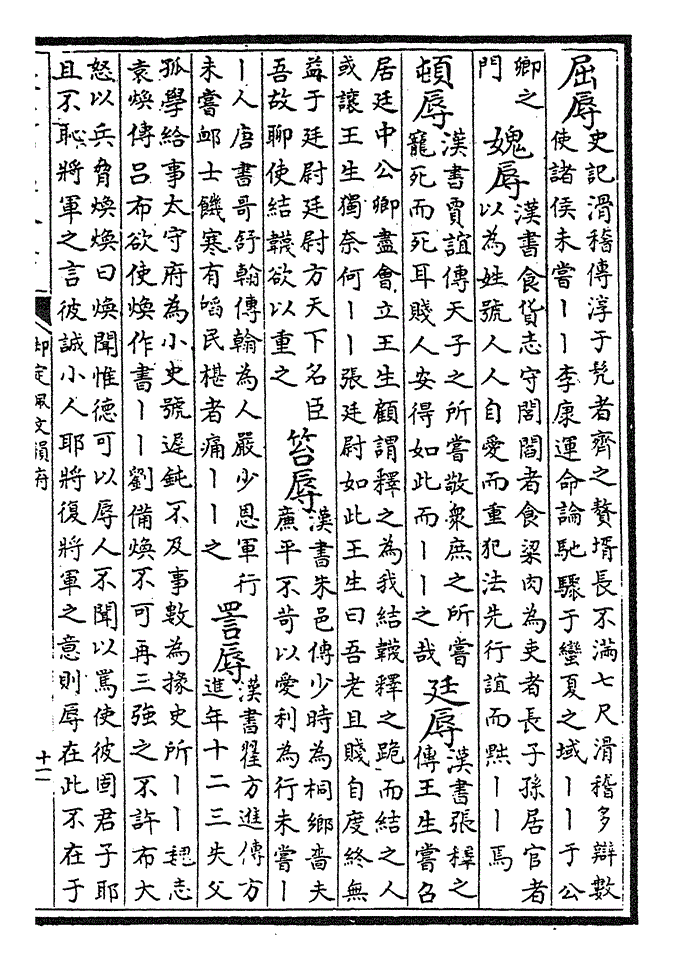 屈辱
史記滑稽傳淳于髡者齊之贅壻長不滿七尺滑稽多辯數
使諸侯未嘗丨丨李康運命論馳驟于蠻夏之域丨丨于公
卿之
門
媿辱
漢書食貨志守閭閻者食梁肉為吏者長子孫居官者
以為姓號人人自愛而重犯法先行誼而黜丨丨焉
頓辱
漢書賈誼傳天子之所嘗敬衆庶之所嘗
寵死而死耳賤人安得如此而丨丨之哉
廷辱
漢書張釋之
傳王生嘗召
居廷中公卿盡會立王生顧謂釋之為我結韈釋之跪而結之人
或讓王生獨奈何丨丨張廷尉如此王生曰吾老且賤自度終無
益于廷尉廷尉方天下名臣
吾故聊使結韈欲以重之
笞辱
漢書朱邑傳少時為桐鄉嗇夫
廉平不苛以愛利為行未嘗丨
丨人唐書哥舒翰傳翰為人嚴少恩軍行
未嘗䘏士饑寒有啗民椹者痛丨丨之
詈辱
漢書翟方進傳方
進年十二三失父
孤學給事太守府為小史號遲鈍不及事數為掾史所丨丨魏志
袁煥傳呂布欲使煥作書丨丨劉備煥不可再三強之不許布大
怒以兵脅煥煥曰煥聞惟德可以辱人不聞以罵使彼固君子耶
且不恥將軍之言彼誠小人耶將復將軍之意則辱在此不在于
御定佩文韻府